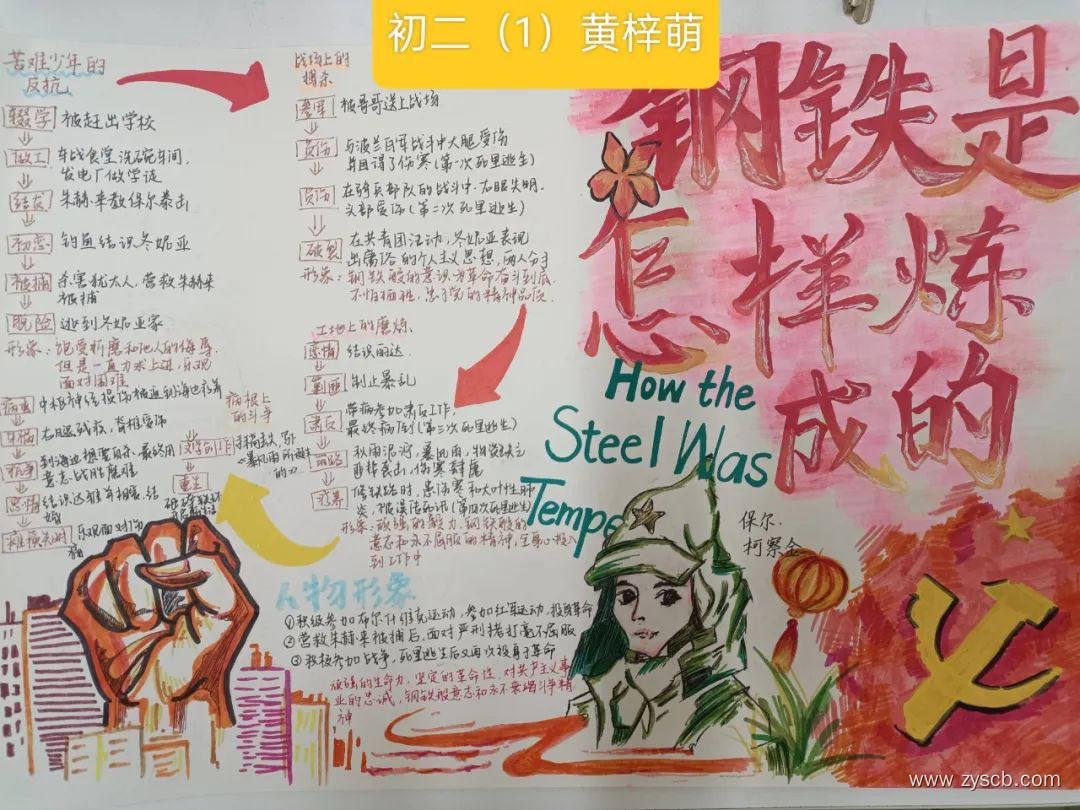 初二（1）黄梓萌
苦难少年的
反抗
辍学 被赶出学校
做工 车战食堂洗碗车间,
发电厂做学徒
结友 朱赫来教保尔拳击
初恋 钓鱼结识冬妮亚
被捕 杀害犹太人,营救朱赫来
被捕
脱险 逃到冬妮亚家
形象:饱受折磨和他人的侮辱.
但是一直力求上进,乐观
面对困难
战场上的
搏杀
参军 被哥哥送上战场
负伤 与波兰白军战斗中大腿受伤
并且得了伤寒(第一次死里逃生)
负伤 在骑兵部队的战斗中.右眼失明.
头部受伤(第二次死里逃生)
破裂 在共青团活动,冬妮亚表现
出庸俗的个人主义思想,两人分手
形象:钢铁般的意识为革命奋斗到底.
不怕牺牲.忠于党的精神品质.
工地上的磨炼
恋情 结识丽达.
制止暴乱
带病参加肃反工作,
最终病倒(第三次死里逃生)
秋雨泥泞,暴风雨,物资缺乏
匪非袭击,伤寒
修铁路时,患伤寒和大叶性肺
炎,被误传死讯(第四次死里逃生)
形象:顽强的毅力,钢铁般的
意志和永不屈服的精神,全身心投入
到工作中
病根上
的斗争
右腿残疾,脊椎受伤
到海边想要自杀,最终用
意志战胜磨难
恋情 结识达雅
重生
乐观面对
人物形象
①积极参加布尔什维克运动,参加红军运动,投身革命
②营救朱赫来被捕后,面对严刑拷打毫不屈服
③积极参加战争,死里逃生后又再次投身于革命
顽强的生命力,坚定的革命性,对共产主义事
业的忠诚,钢铁般意志和永不衰竭斗争精
神
钢铁是
怎样炼
成的
How the
Steel Was
Tempe
保尔.
柯察金
www.zyscb.com